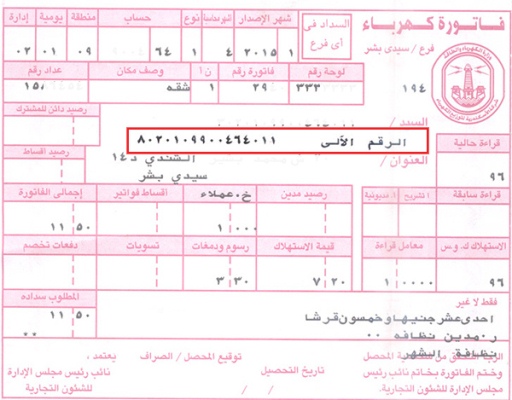 فاتورة كهرباء
فرع / سيدي بشر
١٩٤
السداد فى
أى فرع
شهر الإصدار
نوع
حساب
منطقة
يومية
إدارة
١
٢٠١٥
٤
١
٦٤
٠٩
٠١
٠٢
لوحة رقم
فاتورة رقم
وصف مكان
عداد رقم
٣٣٣
٢٩
١
شقه
١٥٠
السيد /
رصيد دائن للمشترك
الرقم الآلى ٨٠٢٠١٠٩٩٠٠٤٦٤٠١١
العنوان /
الشندي د١٤
سيدي بشر
رصيد أقساط
قراءة حالية
٩٦
قراءة سابقة
رصيد مدين
خ.عملاء
أقساط فواتير
إجمالى الفاتورة
١ ٠٠٠
١١ ٥٠
الاستهلاك ك. و.س
معامل قراءة
قيمة الاستهلاك
رسوم ودمغات
تسويات
دفعات تخصم
٩٦
١ ٠٠٠٠
٧ ٢٠
٣ ٣٠
المطلوب سداده
١١ ٥٠
**
فقط لا غير
احدى عشر جنيها وخمسون قرشا
ر.مدين نظافه ٠٠
نظافة الشهر
المحصل
وختم الفاتورة بخاتم نائب رئيس
مجلس الإدارة للشئون التجارية.
تاريخ التحصيل
توقيع المحصل / الصراف
يعتمد ،
نائب رئيس مجلس الإدارة
للشئون التجارية